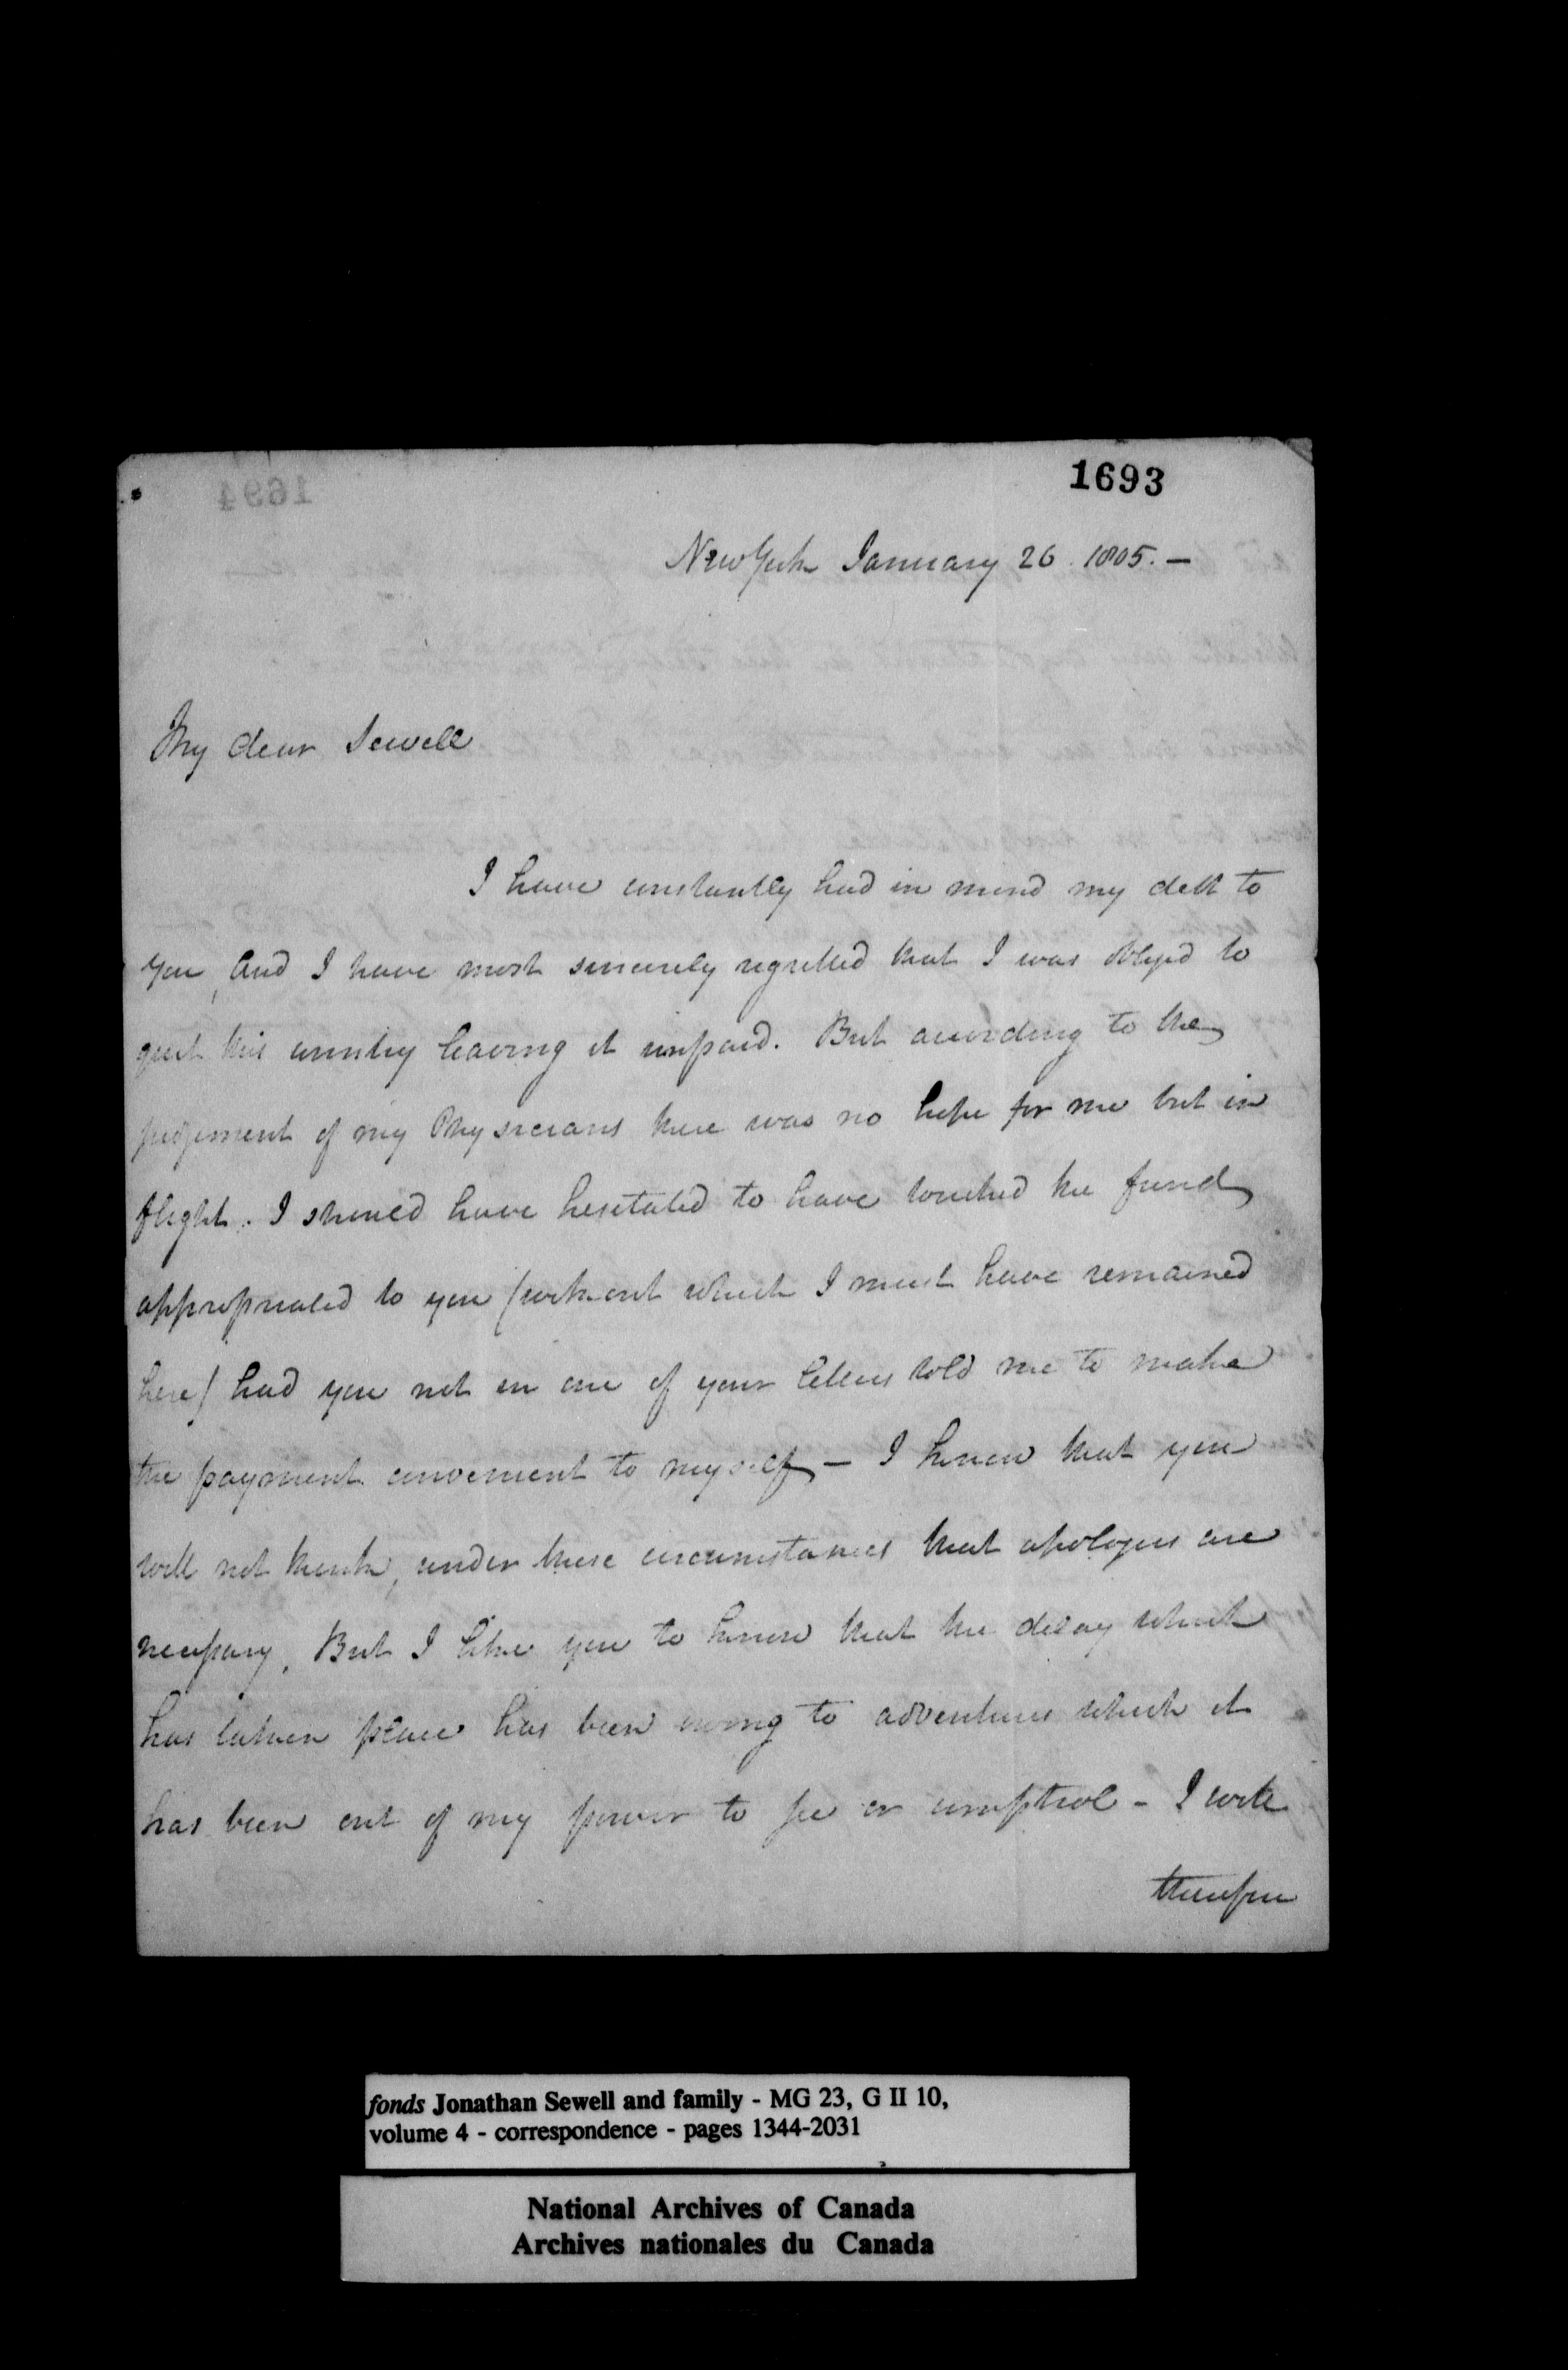 1693
1694
New York January 26. 1805. —
My dear Sewell
I have constantly had in mind my debt to
you, and I have most sincerely regretted that I was obliged to
quit this country leaving it unpaid. But according to the
judgement of my Physicians there was no hope for me but in
flight. I should have hesitated to have touched the fund
appropriated to you (without which I must have remained
here) had you not in one of your letters told me to make
the payment convenient to myself — I know that you
will not think, under these circumstances that apologies are
necessary. But I like you to know that the delay which
has taken place has been owing to adventures which it
has been out of my power to see or comptrol - I will
therefore
fonds Jonathan Sewell and family - MG 23, G II 10,
volume 4 - correspondence - pages 1344-2031
National Archives of Canada
Archives nationales du Canada